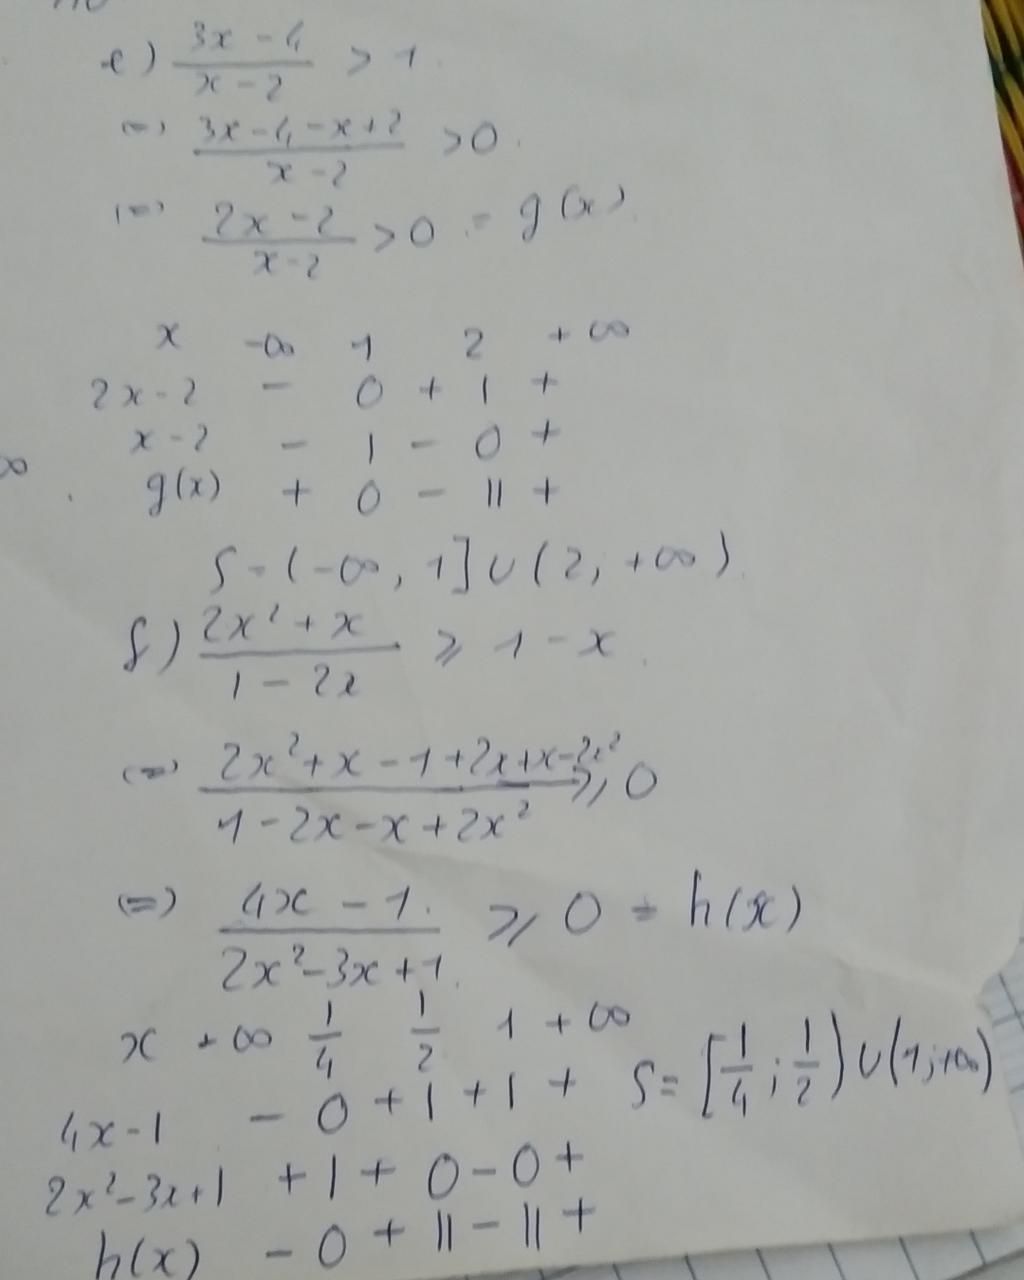 e) (3x - 4)/(x - 2) > 1.
(=) (3x - 4 - x + 2)/(x - 2) > 0.
(=) (2x - 2)/(x - 2) > 0 = g(x).
x -∞ 1 2 +∞
2x - 2 - 0 + | +
x - 2 - | - 0 +
∞
g(x) + 0 - || +
S = (-∞, 1] ∪ (2, +∞)
f) (2x² + x)/(1 - 2x) ≥ 1 - x.
(=) (2x² + x - 1 + 2x + x - 2x²)/(1 - 2x - x + 2x²) ≥ 0
(=) (4x - 1.)/(2x² - 3x + 1.) ≥ 0 = h(x)
x -∞ 1/4 1/2 1 +∞
S = [1/4 ; 1/2) ∪ (1; +∞)
4x - 1 - 0 + | + | +
2x² - 3x + 1 + | + 0 - 0 +
h(x) - 0 + || - || +